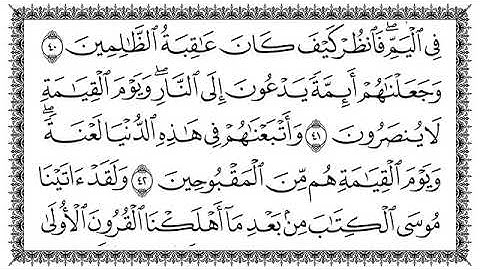 فِي ٱلۡيَمِّۖ فَٱنظُرۡ كَيۡفَ كَانَ عَٰقِبَةُ ٱلظَّٰلِمِينَ ٤٠
وَجَعَلۡنَٰهُمۡ أَئِمَّةٗ يَدۡعُونَ إِلَى ٱلنَّارِۖ وَيَوۡمَ ٱلۡقِيَٰمَةِ
لَا يُنصَرُونَ ٤١ وَأَتۡبَعۡنَٰهُمۡ فِي هَٰذِهِ ٱلدُّنۡيَا لَعۡنَةٗۖ
وَيَوۡمَ ٱلۡقِيَٰمَةِ هُم مِّنَ ٱلۡمَقۡبُوحِينَ ٤٢ وَلَقَدۡ ءَاتَيۡنَا
مُوسَى ٱلۡكِتَٰبَ مِنۢ بَعۡدِ مَآ أَهۡلَكۡنَا ٱلۡقُرُونَ ٱلۡأُولَىٰ